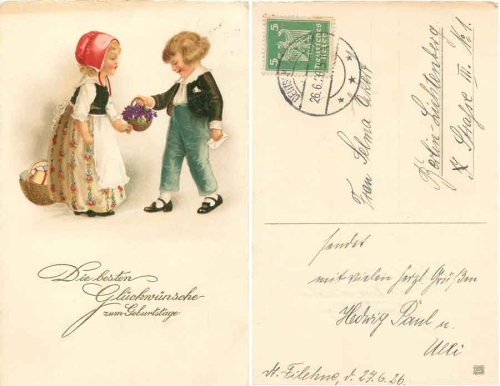 Die besten
Glückwünsche
zum Geburtstage
5 5
Deutsches
Reich
26.6.26
Frau Selma
Berlin-Lichtenberg
Straße III. № 1.
sendet
mit vielen herzl. Grüßen
Hedwig Paul u.
Ulli
Filehne, d. 27.6.26.